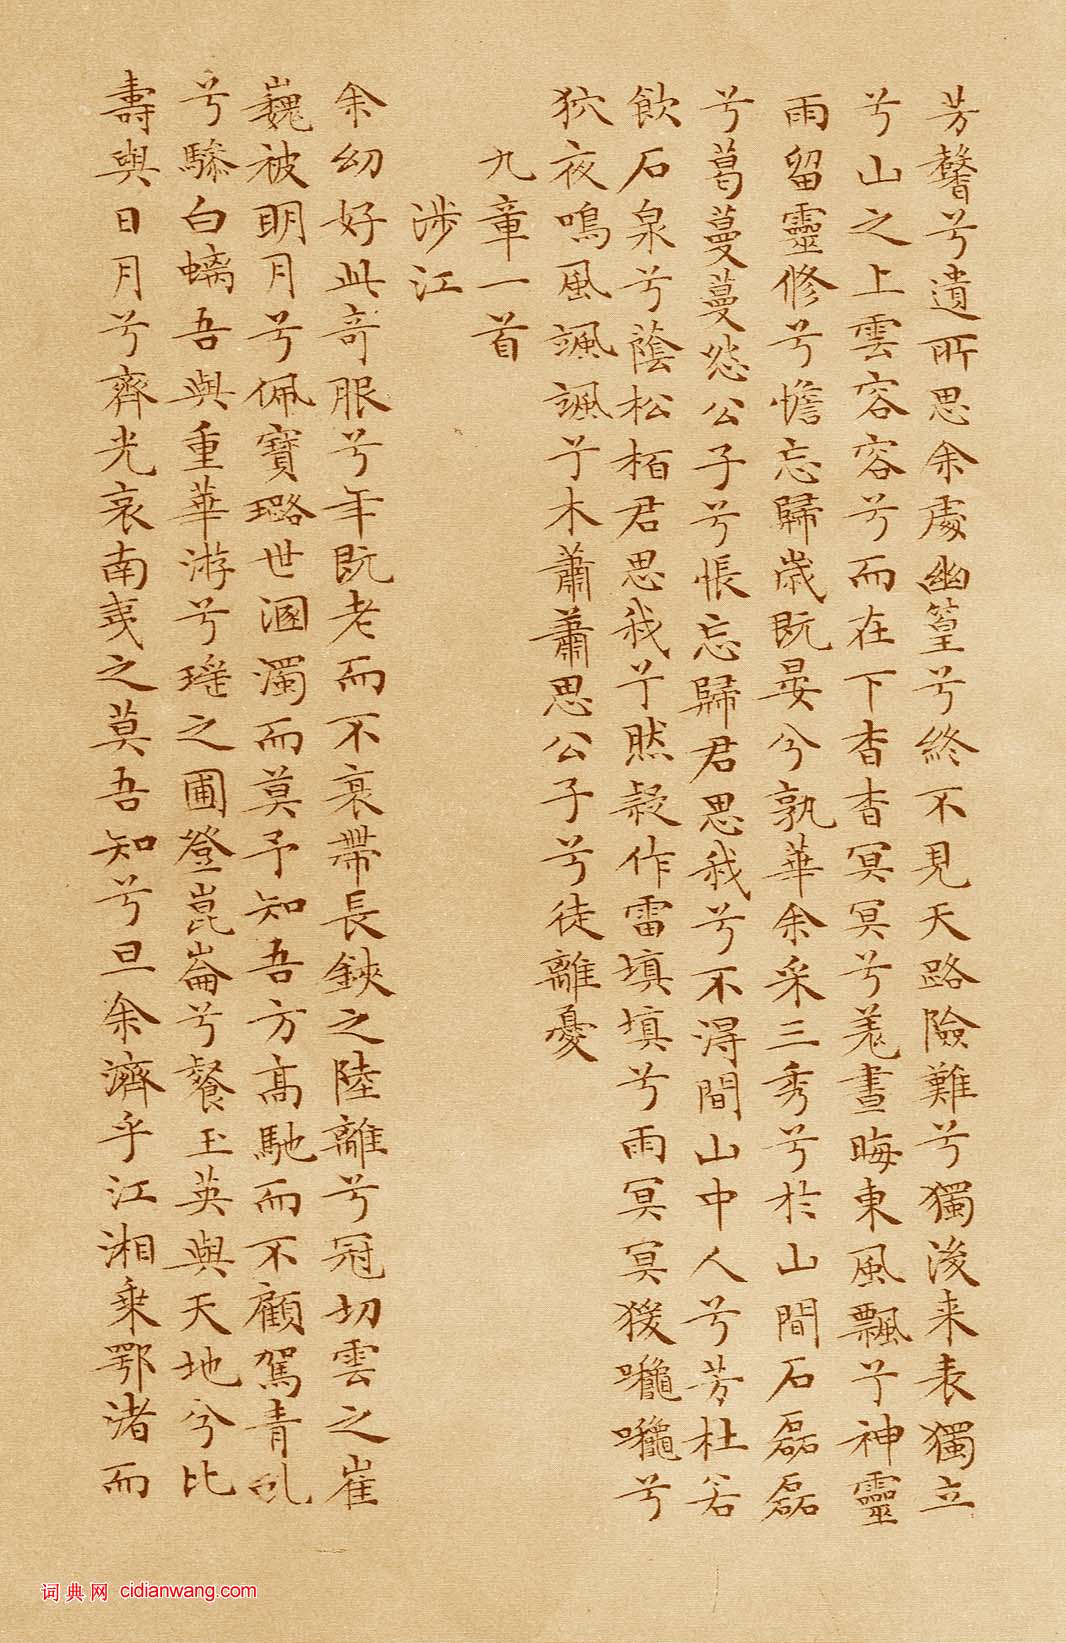 芳馨兮遺所思余處幽篁兮終不見天路險難兮獨後来表獨立
兮山之上雲容容兮而在下杳杳冥冥兮羌晝晦東風飄兮神靈
雨留靈修兮憺忘歸歲既晏兮孰華余采三秀兮於山間石磊磊
兮葛蔓蔓怨公子兮悵忘歸君思我兮不得間山中人兮芳杜若
飲石泉兮蔭松栢君思我兮然疑作雷填填兮雨冥冥猨嚨嚨兮
狖夜鳴風颯颯兮木蕭蕭思公子兮徒離憂
九章一首
涉江
余幼好此奇服兮年既老而不衰帶長鋏之陸離兮冠切雲之崔
巍被明月兮佩寶璐世溷濁而莫予知吾方高馳而不顧駕青虬
兮驂白螭吾與重華游兮瑤之圃登崑崙兮餐玉英與天地兮比
壽與日月兮齊光哀南夷之莫吾知兮旦余濟乎江湘乘鄂渚而
词典网 cidianwang.com